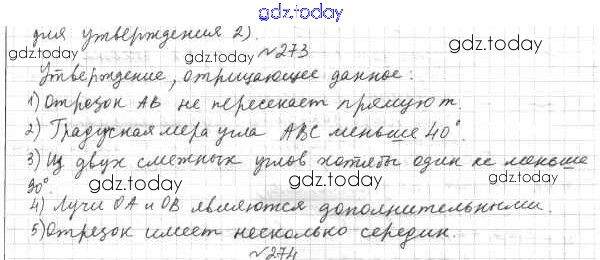 gdz.today
для утверждения 2).
gdz.today gdz.today №273 gdz.today
Утверждение, отрицающее данное:
1) Отрезок AB не пересекает прямую m.
2) Градусная мера угла ABC меньше 40°.
3) Из двух смежных углов хотябы один не меньше
90°. gdz.today gdz.today gdz.today
4) Лучи OA и OB являются дополнительными.
5) Отрезок имеет несколько середин.
№274